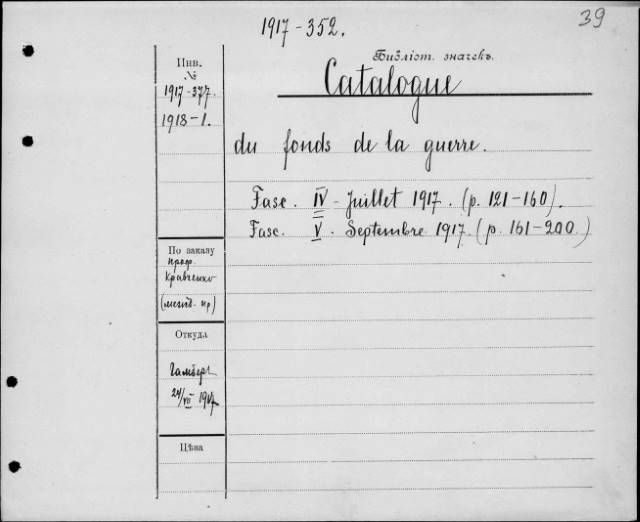 39
1917-352.
Библіот. значекъ.
Catalogue
du fonds de la guerre.
Fasc. IV - Juillet 1917. (p. 121-160).
Fasc. V. Septembre 1917. (p. 161-200.)
Инв.
№
1917-377.
1918-1.
По заказу
проф.
Кравченко
Откуда
24/VII 1917.
Цѣна